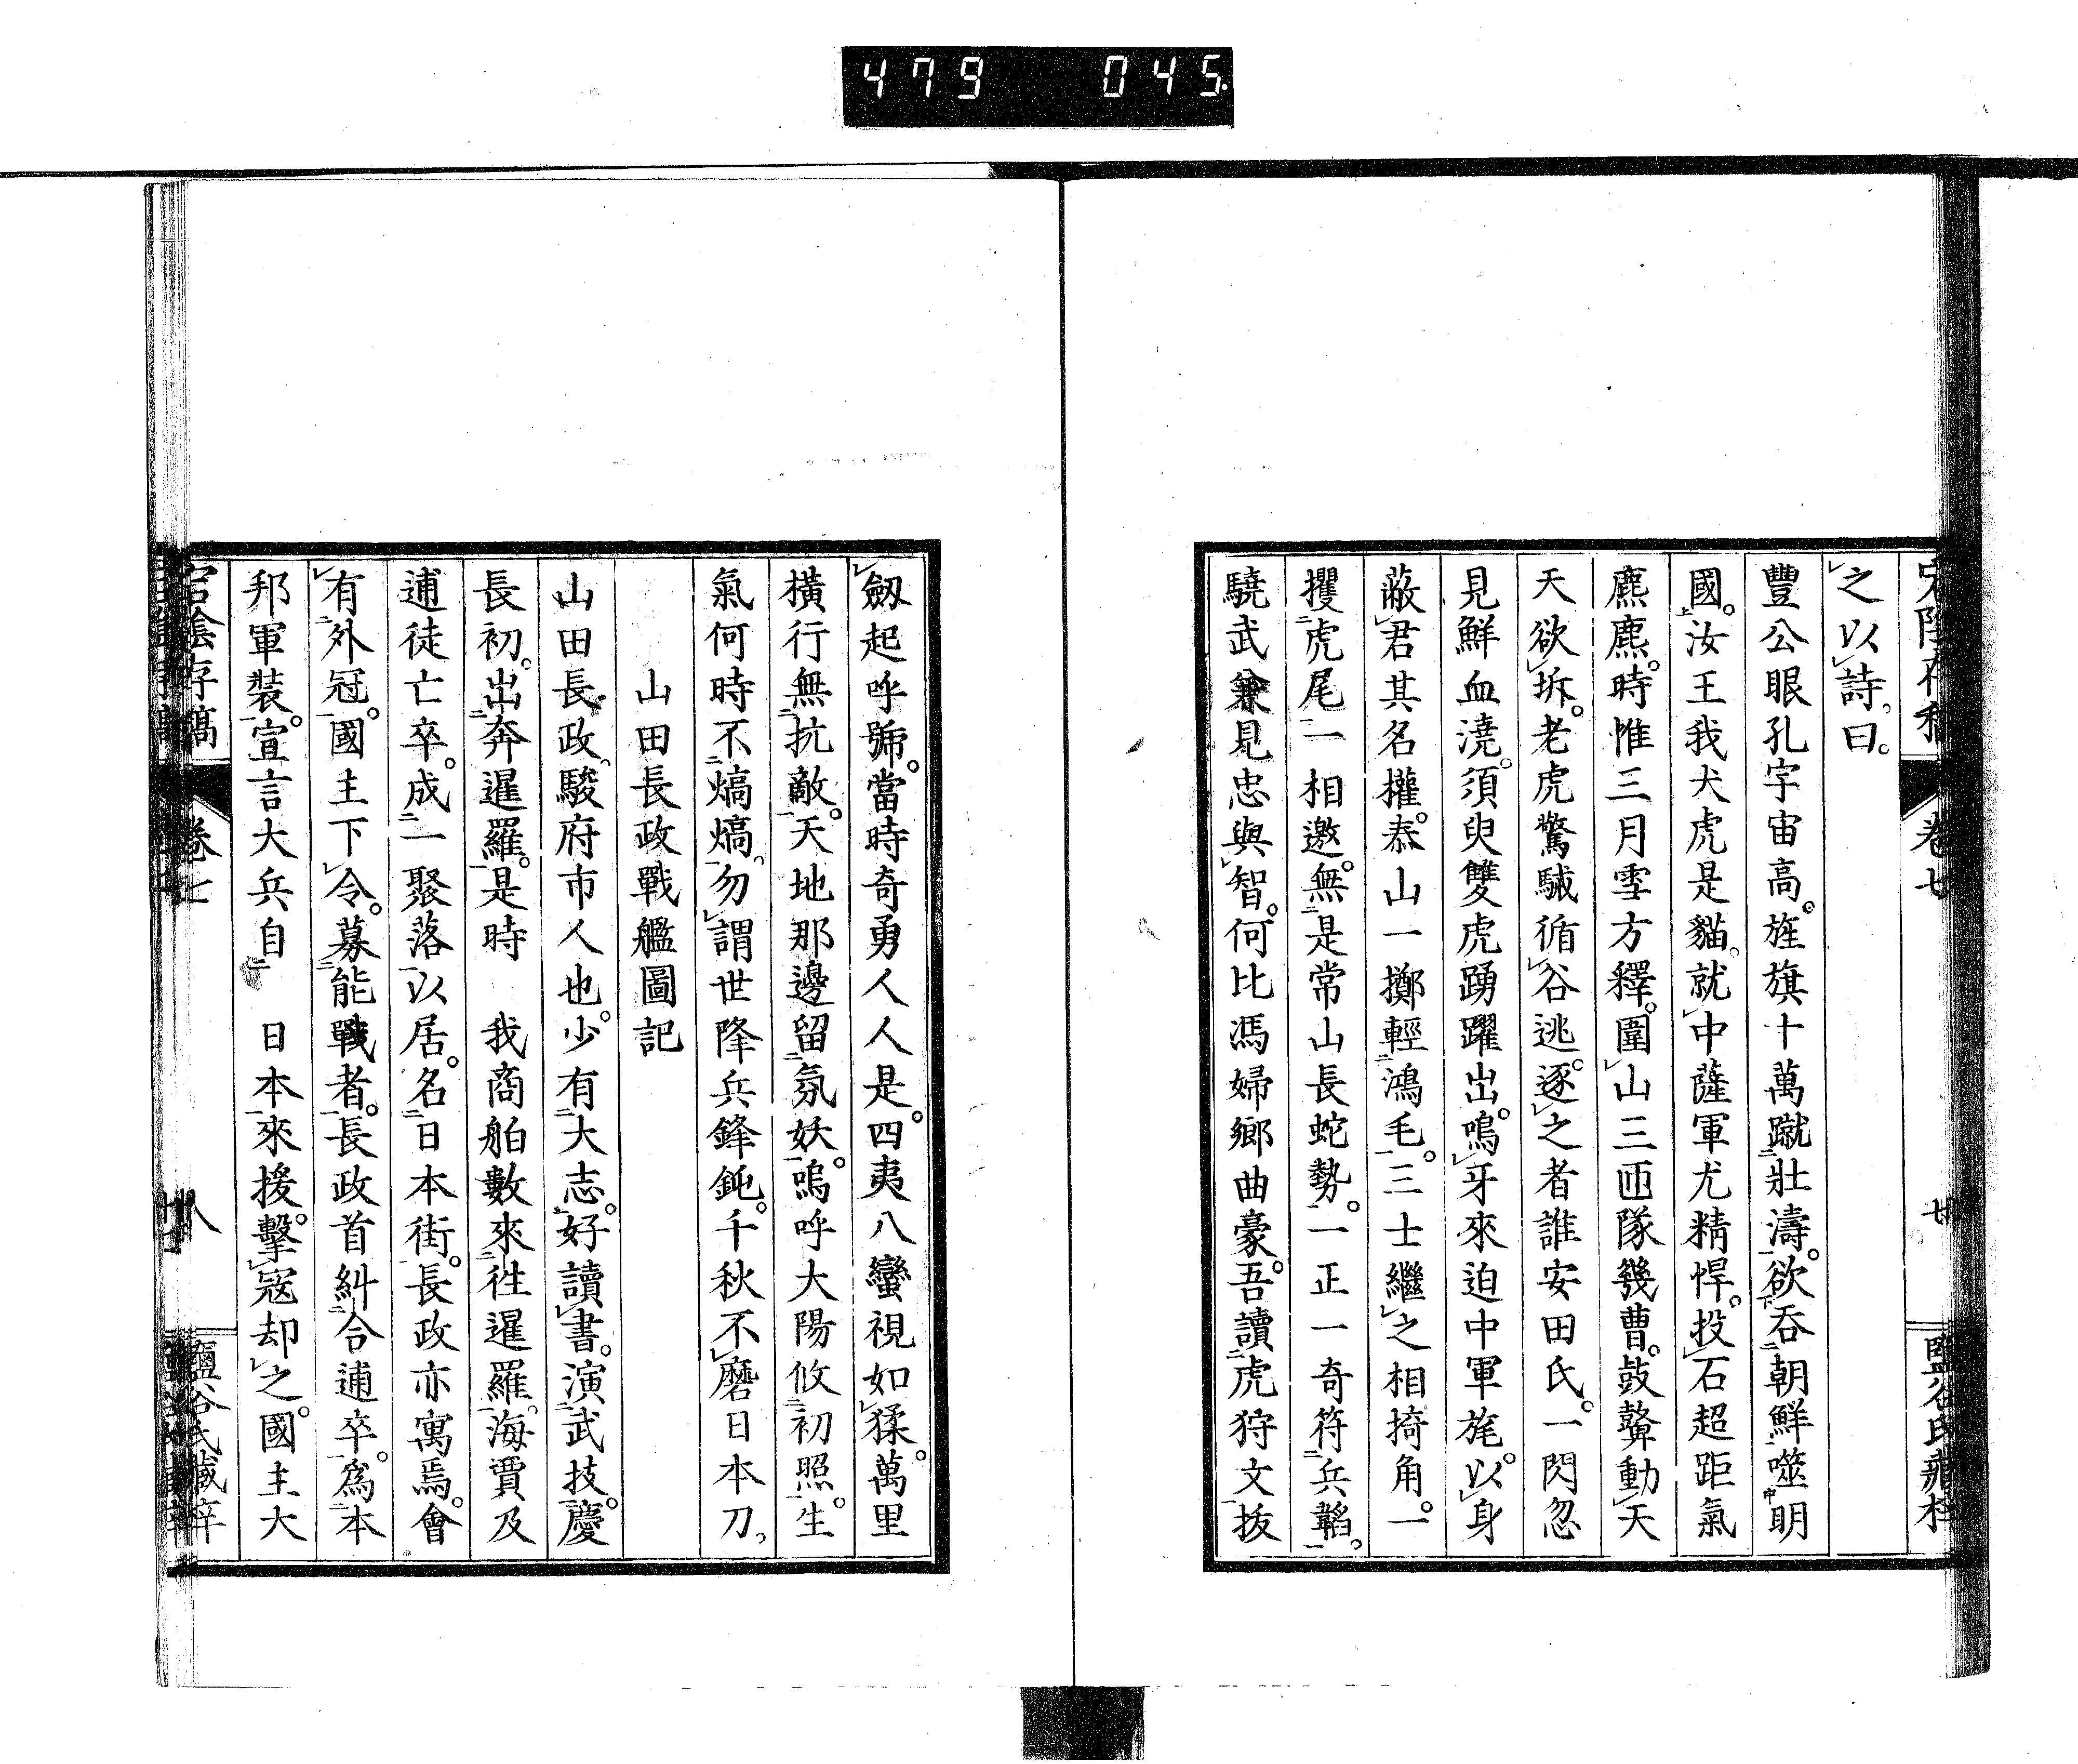 479 045
宕陰存稿 卷七 廿 鹽谷氏藏梓
之以詩。曰。
豐公眼孔宇宙高。旌旗十萬蹴壯濤。欲吞朝鮮噬明
國。汝王我犬虎是貓。就中薩軍尤精悍。投石超距氣
麃麃。時惟三月雪方釋。圍山三匝隊幾曹。鼓鼙動天
天欲坼。老虎驚駴循谷逃。逐之者誰安田氏。一閃忽
見鮮血澆。須臾雙虎踴躍出。鳴牙來迫中軍旄。以身
蔽君其名權。泰山一擲輕鴻毛。三士繼之相掎角。一
攫虎尾一相邀。無是常山長蛇勢。一正一奇符兵韜。
驍武兼見忠與智。何比馮婦鄉曲豪。吾讀虎狩文拔
劔起呼號。當時奇勇人人是。四夷八蠻視如猱。萬里
橫行無抗敵。天地那邊留氛妖。嗚呼大陽攸初照。生
氣何時不熇熇。勿謂世降兵鋒鈍。千秋不磨日本刀。
山田長政戰艦圖記
山田長政、駿府市人也。少有大志。好讀書。演武技。慶
長初。出奔暹羅。是時 我商舶數來往暹羅。海賈及
逋徒亡卒。成一聚落以居。名日本街。長政亦寓焉。會
有外冠。國主下令。募能戰者。長政首糾合逋卒。爲本
邦軍裝。宣言大兵自 日本來援。擊寇却之。國主大
宕陰存稿 卷七 八 鹽谷氏藏梓